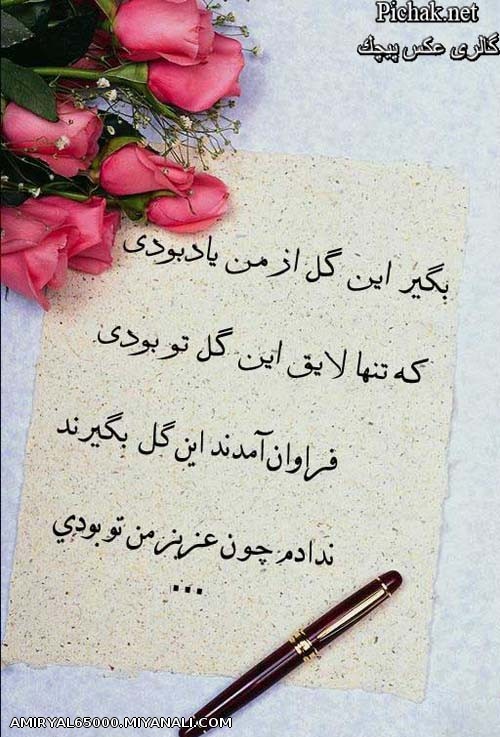 Pichak.net
گالری عکس پیچک
بگیر این گل از من یادبودی
که تنها لایق این گل تو بودی
فراوان آمدند این گل بگیرند
ندادم چون عزیز من تو بودي
...
AMIRYAL65000.MIYANALI.COM